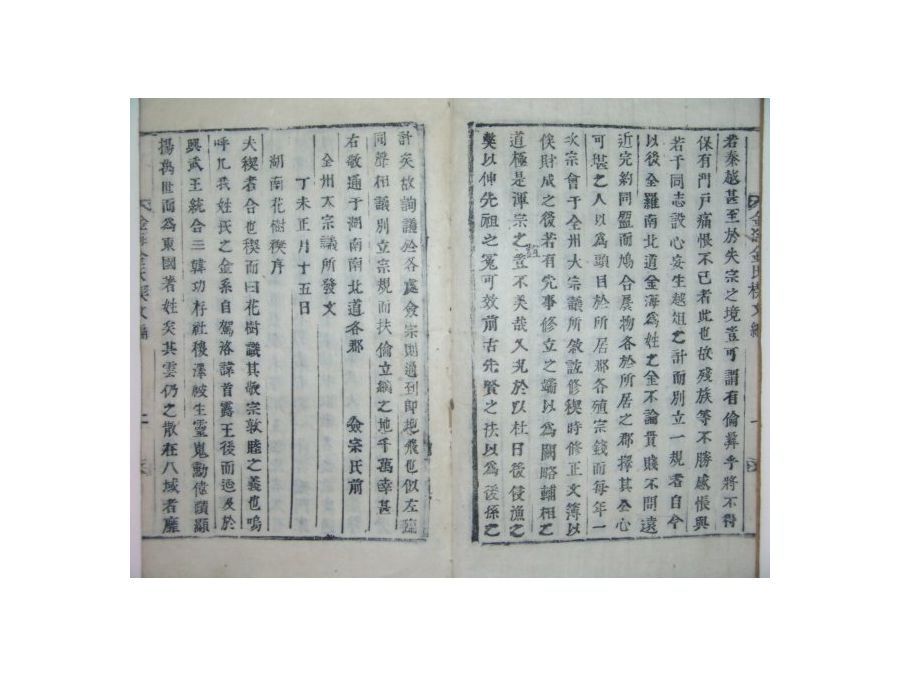 若秦越甚至於失宗之境豈可謂有倫彛乎將不得
保有門戶痛恨不已者此也故殘族等不勝感悵與
若于同志設心妄生越俎之計而別立一規者自今
以後全羅南北道金海爲姓之金不論貴賤不問遠
近完約同盟而鳩合屓物各於所居之郡擇其公心
可堪之人以爲頭目於所居郡各殖宗錢而每年一
次宗會于全州大宗議所敘誼修稧時修正文簿以
俟財成之後若有先事修立之端以爲闕略輔相之
道極是渾宗之誼豈不美哉又況於以杜日後侵漁之
獘以伸先祖之冤可效前古先賢之扶以爲後孫之
金海金氏稧文編
一
計矣故詢議於各處僉宗則通到卽地飛也似左疏
同聲相議別立宗規而扶倫立綱之地千萬幸甚
右敬通于湖南南北道各郡 僉宗氏前
全州大宗議所發文
丁未正月十五日
湖南花樹稧序
夫稧者合也稧而曰花樹識其敬宗敦睦之義也嗚
呼凡我姓氏之金系自駕洛諱首露王後而迨及於
興武王統合三韓功存社稷澤被生靈嵬勳偉蹟顯
揚萬世而爲東國著姓矣其雲仍之散在八域者靡
金海金氏稧文編